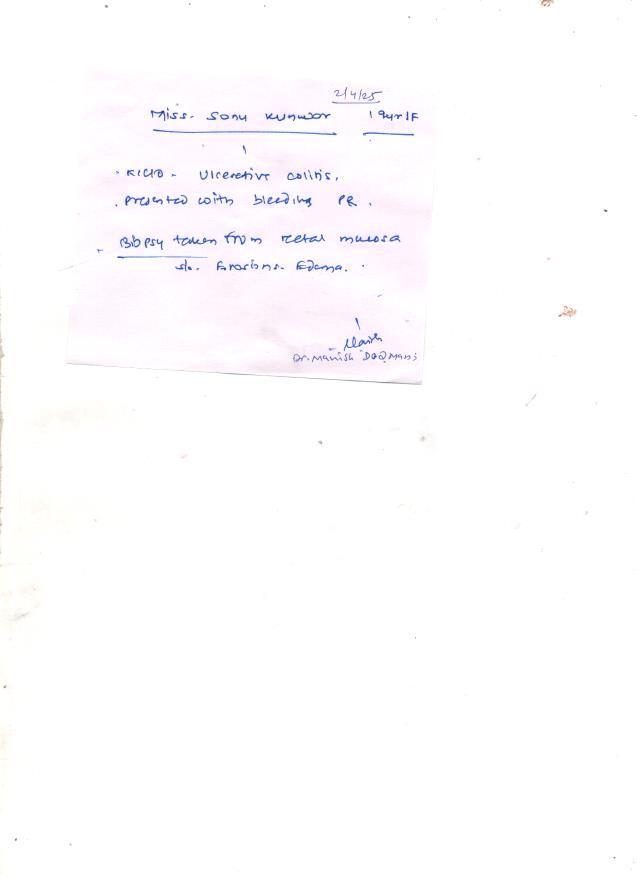 2/4/25
Miss. Sonu Kunwor 19yr/F
. K/C/O - Ulcerative colitis.
. Presented with bleeding PR.
- Biopsy taken from rectal mucosa
s/o. Erosions. Edema.
Dr. Manish